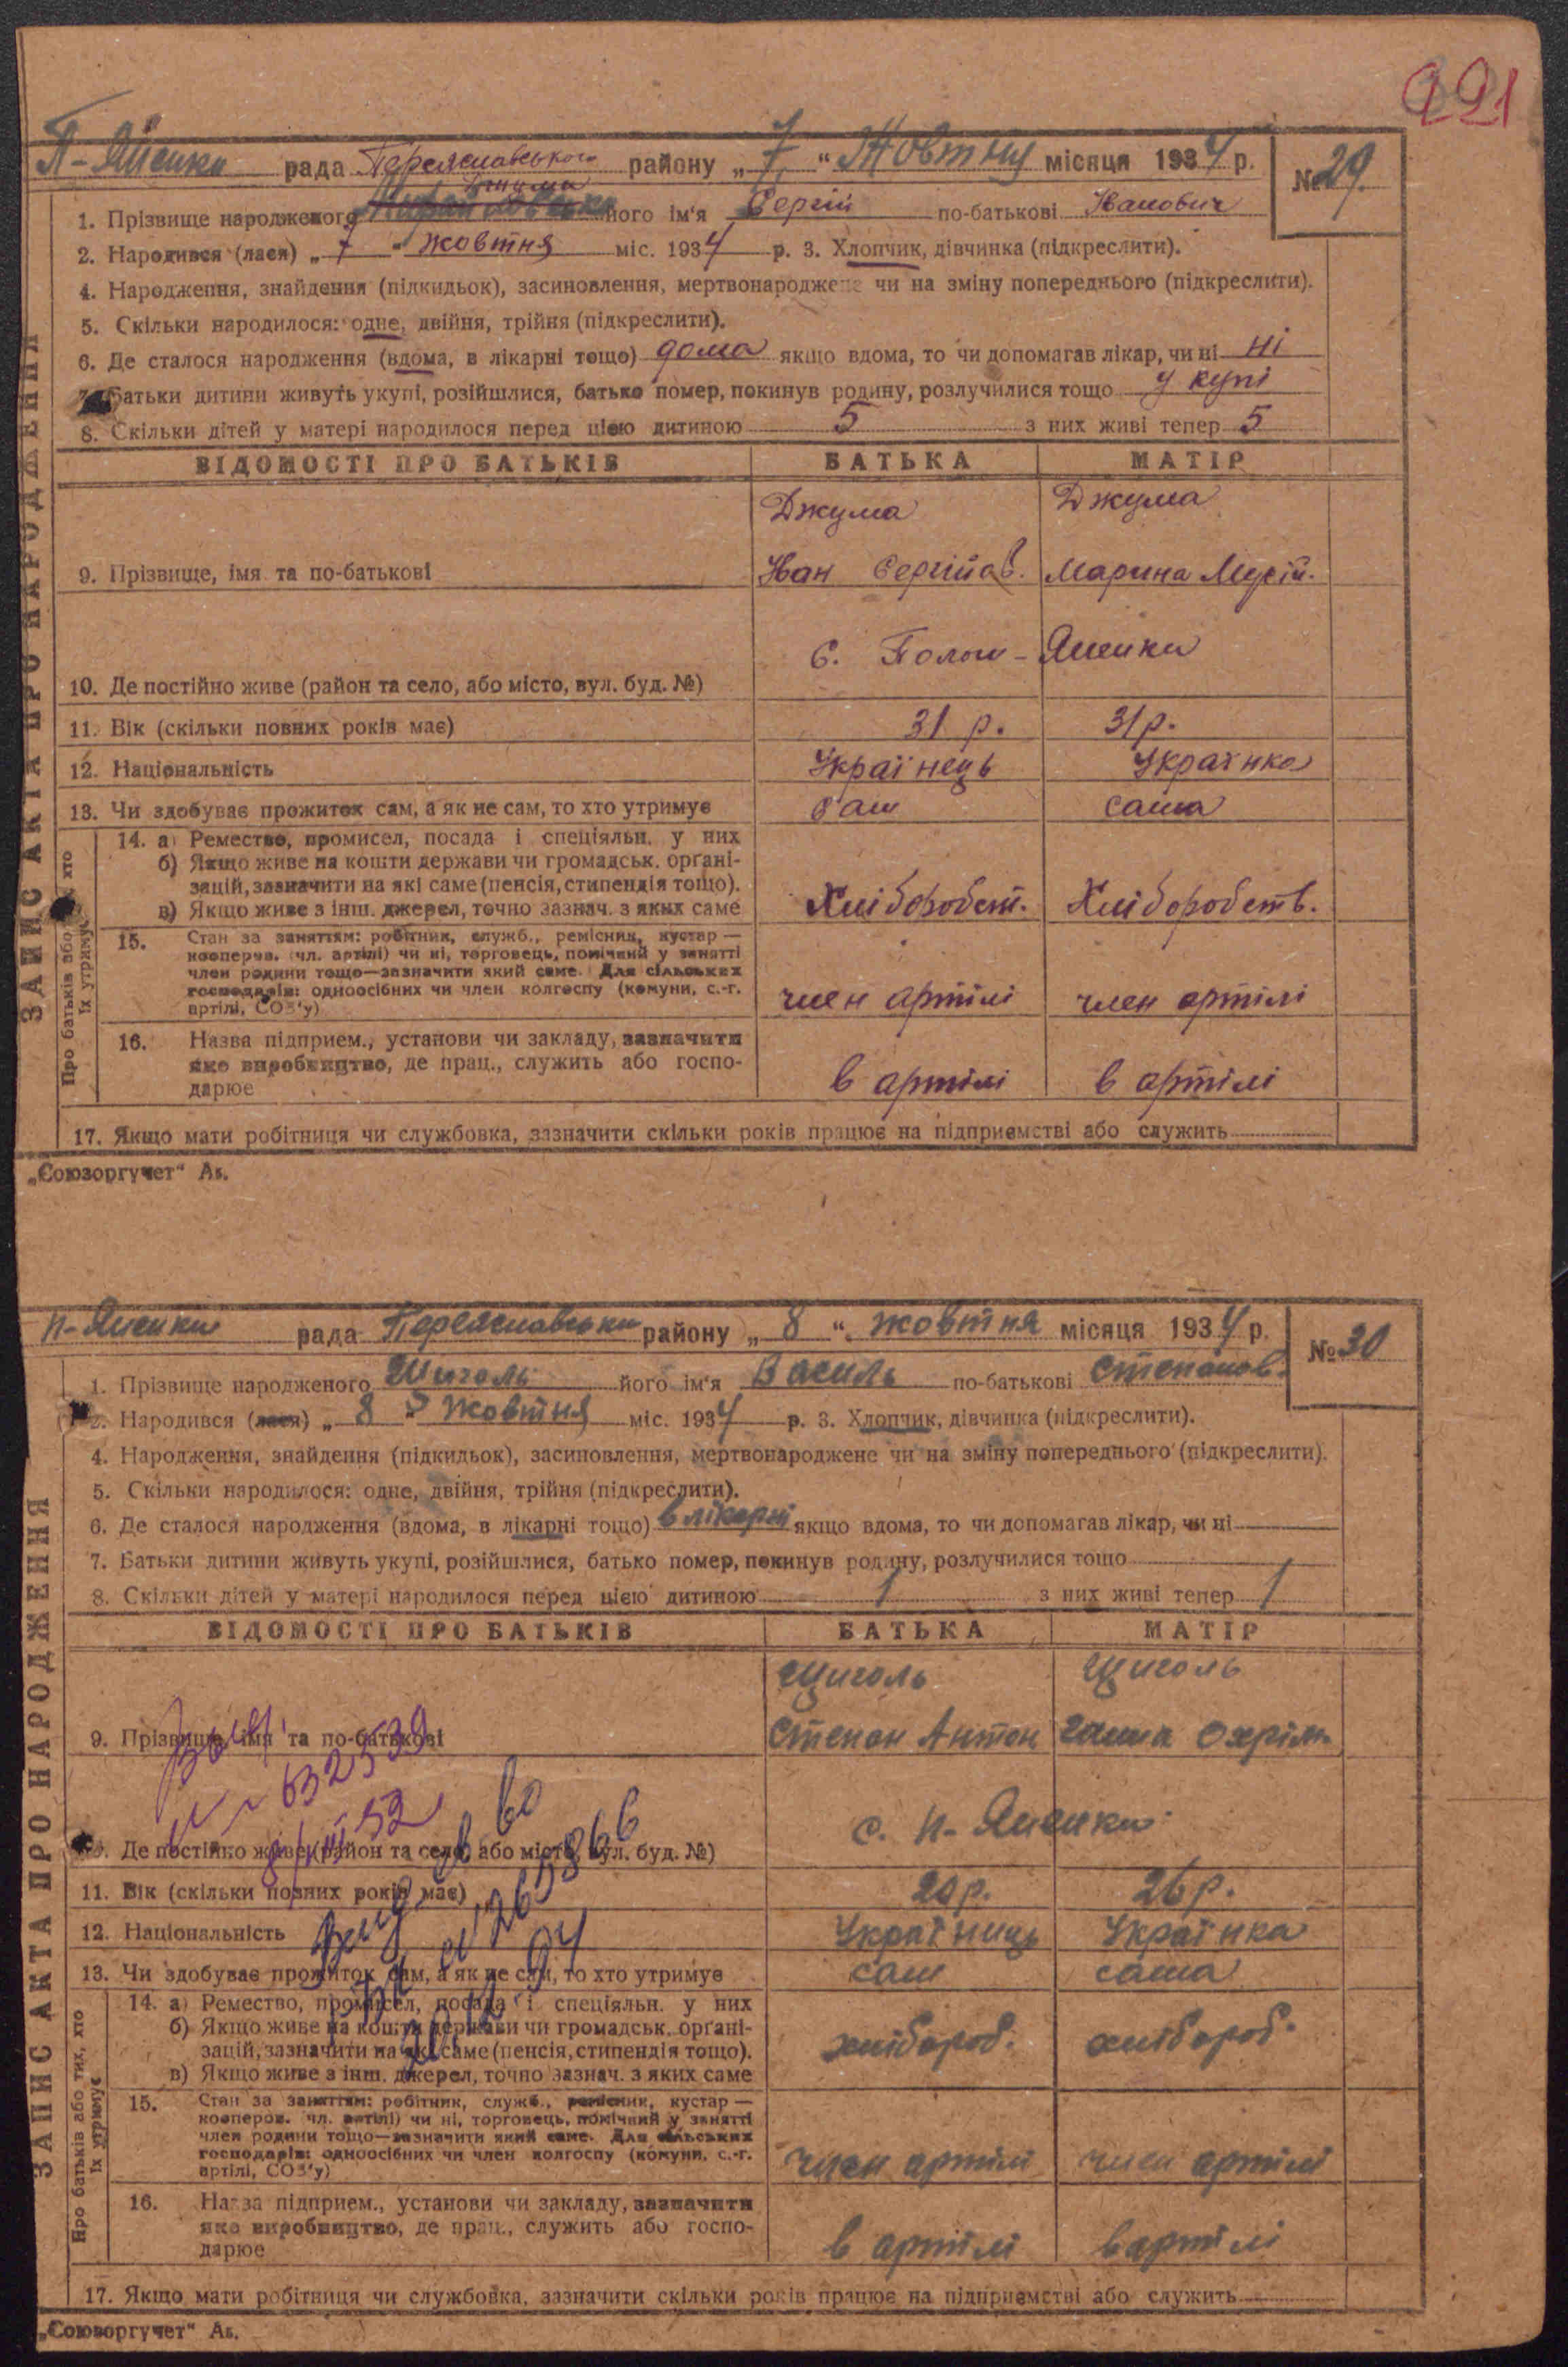 221
П-Яненки рада Переяславського району „ 7 “ Жовтня місяця 1934 р. № 29.
Джума
1. Прізвище народженого його ім'я Сергій по-батькові Іванович
2. Народився (лася) „ 7 “ жовтня міс. 1934 р. 3. Хлопчик, дівчинка (підкреслити).
4. Народження, знайдення (підкидьок), засиновлення, мертвонароджене чи на зміну попереднього (підкреслити).
5. Скільки народилося: одне, двійня, трійня (підкреслити).
6. Де сталося народження (вдома, в лікарні тощо) дома якщо вдома, то чи допомагав лікар, чи ні ні
7. Батьки дитини живуть укупі, розійшлися, батько помер, покинув родину, розлучилися тощо у купі
8. Скільки дітей у матері народилося перед цією дитиною 5 з них живі тепер 5
ВІДОМОСТІ ПРО БАТЬКІВ БАТЬКА МАТІР
Джума Джума
9. Прізвище, імя та по-батькові Іван Сергійов. Марина Мусій.
с. Полом-Яненки
10. Де постійно живе (район та село, або місто, вул. буд. №)
11. Вік (скільки повних років має) 31 р. 31 р.
12. Національність Українець Українка
13. Чи здобуває прожиток сам, а як не сам, то хто утримує сам сама
14. а) Ремество, промисел, посада і спеціяльн. у них
б) Якщо живе на кошти держави чи громадськ. орґані-
зацій, зазначити на які саме (пенсія, стипендія тощо).
в) Якщо живе з інш. джерел, точно зазнач. з яких саме Хліборобст. Хліборобств.
15. Стан за заняттям: робітник, служб., ремісник, кустар —
кооперов. (чл. артілі) чи ні, торговець, помічний у занятті
член родини тощо—зазначити який саме. Для сільських
господарів: одноосібних чи член колгоспу (комуни, с.-г.
артілі, СОЗ'у) член артілі член артілі
16. Назва підприєм., установи чи закладу, зазначити
яке виробництво, де прац., служить або госпо-
дарює в артілі в артілі
17. Якщо мати робітниця чи службовка, зазначити скільки років працює на підприємстві або служить
ЗАПИС АКТА ПРО НАРОДЖЕННЯ
Про батьків або хто їх утримує
„Союзоргучет“ Ав.
П-Яненки рада Переяславськи району „ 8 “ жовтня місяця 1934 р. № 30
1. Прізвище народженого Щиголь його ім'я Василь по-батькові Степанов.
2. Народився (лася) „ 8 “ Жовтня міс. 1934 р. 3. Хлопчик, дівчинка (підкреслити).
4. Народження, знайдення (підкидьок), засиновлення, мертвонароджене чи на зміну попереднього (підкреслити).
5. Скільки народилося: одне, двійня, трійня (підкреслити).
6. Де сталося народження (вдома, в лікарні тощо) в лікарні якщо вдома, то чи допомагав лікар, чи ні
7. Батьки дитини живуть укупі, розійшлися, батько помер, покинув родину, розлучилися тощо
8. Скільки дітей у матері народилося перед цією дитиною 1 з них живі тепер 1
ВІДОМОСТІ ПРО БАТЬКІВ БАТЬКА МАТІР
Щиголь Щиголь
9. Прізвище, імя та по-батькові Степан Антон Ганна Охрім.
с. П-Яненки
10. Де постійно живе (район та село, або місто, вул. буд. №)
11. Вік (скільки повних років має) 20 р. 26 р.
12. Національність Україниць Українка
13. Чи здобуває прожиток сам, а як не сам, то хто утримує сам сама
14. а) Ремество, промисел, посада і спеціяльн. у них
б) Якщо живе на кошти держави чи громадськ. орґані-
зацій, зазначити на які саме (пенсія, стипендія тощо).
в) Якщо живе з інш. джерел, точно зазнач. з яких саме хлібороб. хлібороб.
15. Стан за заняттям: робітник, служб., ремісник, кустар —
кооперов. чл. артілі) чи ні, торговець, помічний у занятті
член родини тощо—зазначити який саме. Для сільських
господарів: одноосібних чи член колгоспу (комуни, с.-г.
артілі, СОЗ'у) член артілі член артілі
16. Назва підприєм., установи чи закладу, зазначити
яке виробництво, де прац., служить або госпо-
дарює в артілі в артілі
17. Якщо мати робітниця чи службовка, зазначити скільки років працює на підприємстві або служить
ЗАПИС АКТА ПРО НАРОДЖЕННЯ
Про батьків або тих, хто їх утримує
„Союзоргучет“ Ав.